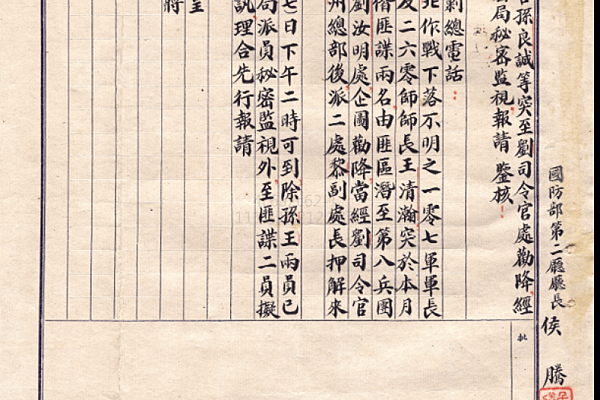 孫良誠等突至劉司令官處勸降經
局秘密監視報請 鑒核
國防部第二廳廳長侯騰
剿總電話
北作戰下落不明之一零七軍軍長
及二六零師師長王清瀚突於本月
偕匪諜兩名由匪區潛至第八兵團
劉汝明處企圖勸降當經劉司令官
州總部後派二處黎副處長押解來
七日下午二時可到除孫王兩員已
局派員秘密監視外至匪諜二員擬
訊理合先行報請
呈
批